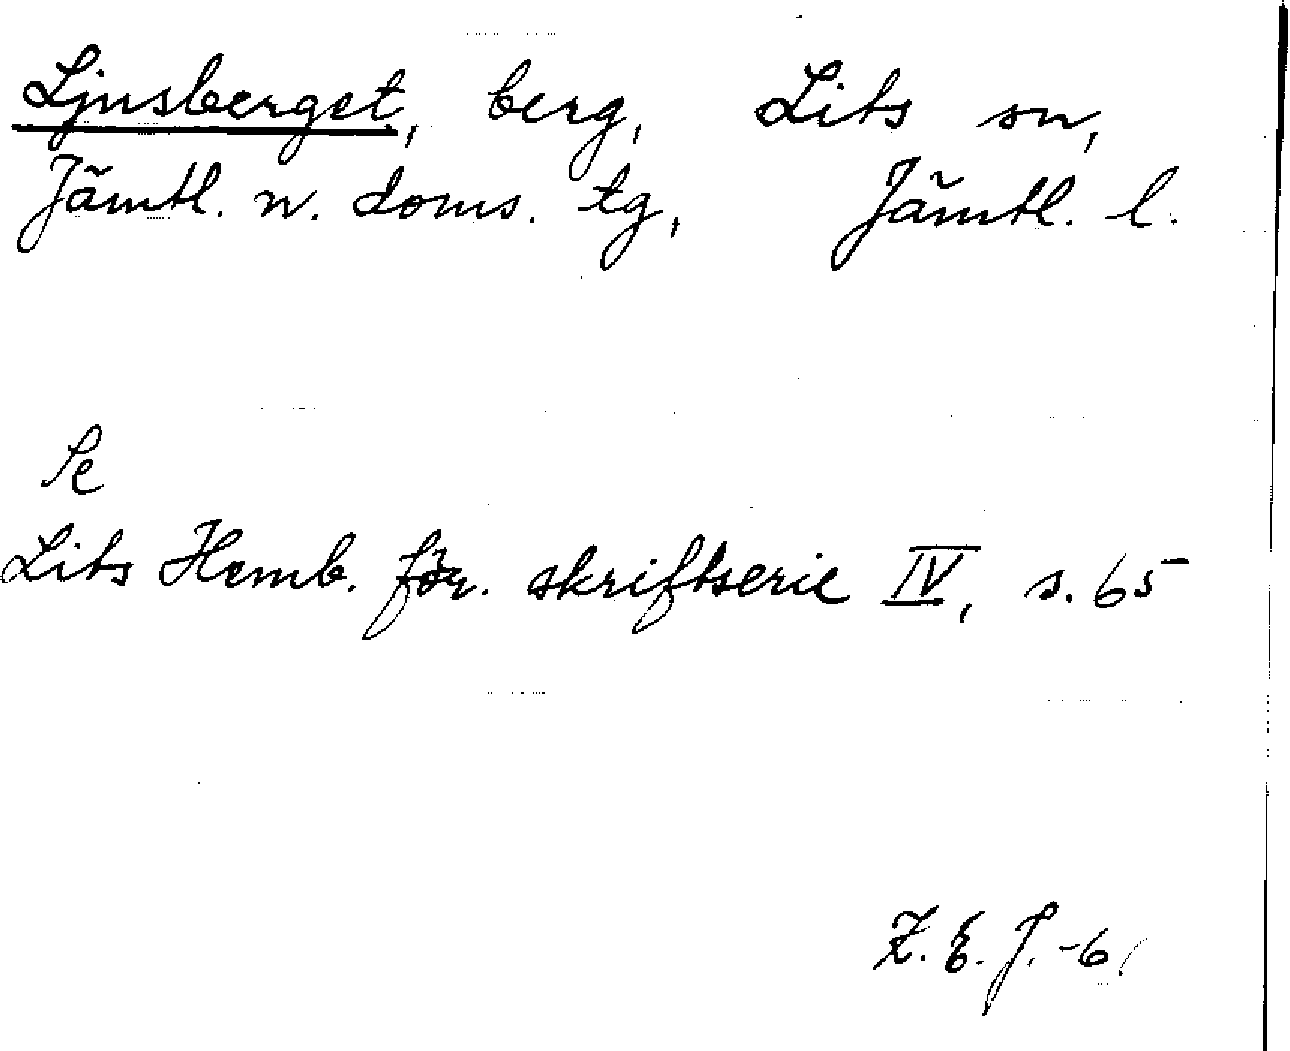 Ljusberget, berg, Lits sn,
Jämtl. n. doms. tg, Jämtl. l.
Se
Lits Hemb. för. skriftserie IV, s. 65
Z. E. J. -6